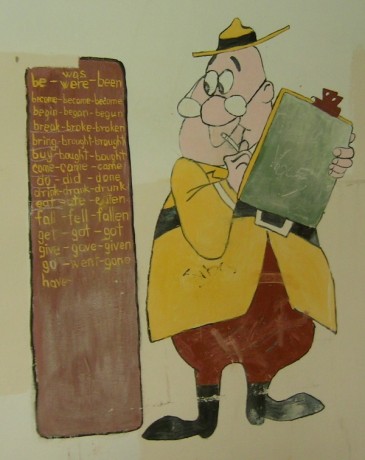 was
be - were - been
become-became-become
begin-began-begun
break-broke-broken
bring-brought-brought
buy-bought-bought
come-came-come
do - did - done
drink-drank-drunk
eat - ate - eaten
fall - fell - fallen
get - got - got
give - gave - given
go - went - gone
have-